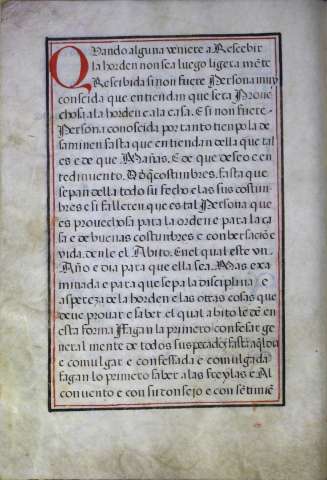 Quando alguna veniere a Rescebir
la horden no sea luego ligera mẽte
Rescibida si non fuere Persona muy
conscida que entiendan que sera Proue
chosa a la horden e a la casa. E si non fuere
Persona conoscida por tanto tienpo la de
saminen fasta que entiendan della que tal
es e de que Mañas. E de que deseo e en
tedimiento. costunbres. fasta que
sepan della todo su fecho e las sus costun
bres e si falleren que es tal Persona que
es prouechosa para la orden e para la ca
sa e de buenas costunbres e conbersaciõ e
vida. denle el Abito. En el qual este vn
Año e dia para que ella sea Mas exa
minada e para que sepa la disciplina e
aspereza de la horden e las otras cosas que
deue prouar e saber el qual abito le dẽ en
esta forma ffagan la primero confesar ge
neral mente de todos sus pecados fasta aql dia
e comulgar e confessada e comulgada
fagan lo primero saber a las freylas Al
conuento e con su consejo e con sẽtimiẽ